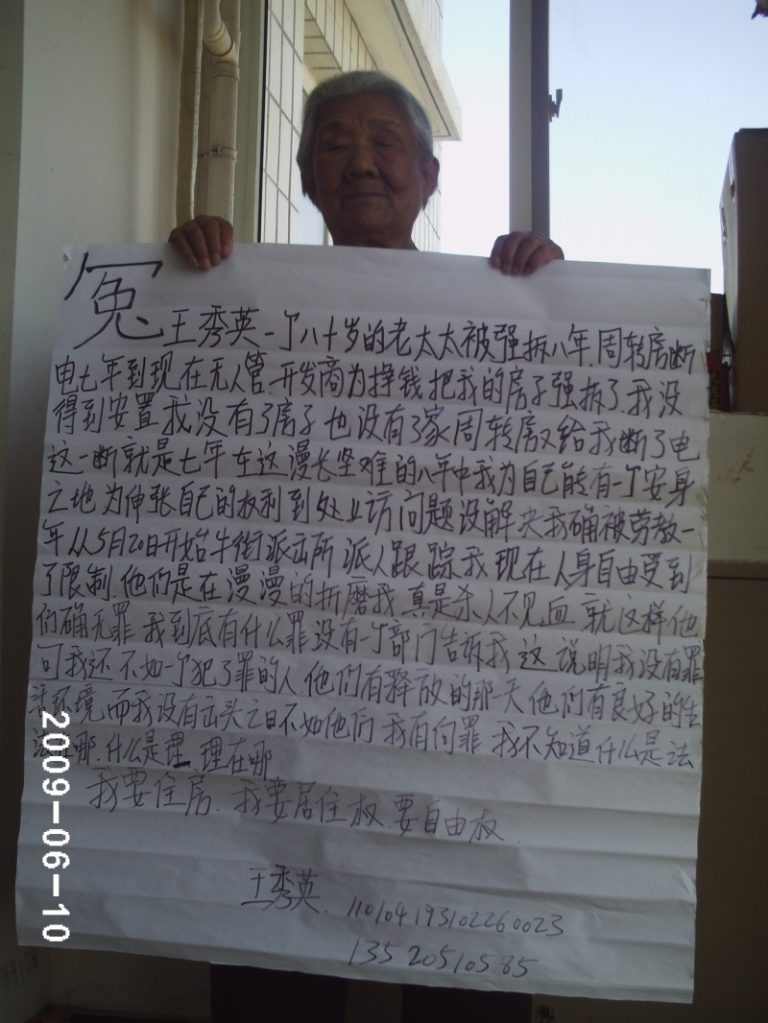 冤 王秀英一个八十岁的老太太被强拆八年周转房断
电七年到现在无人管.开发商为挣钱把我的房子强拆了.我没
得到安置我没有了房子也没有了家周转房又给我断了电
这一断就是七年在这漫长坚难的八年中我为自己能有一个安身
之地为伸张自己的权利到处上访问题没解决我确被劳教一
年从5月20日开始牛街派出所派人跟踪我现在人身自由受到
了限制.他们是在漫漫的折磨我真是杀人不见血就这样他
们确无罪我到底有什么罪没有一个部门告诉我这说明我没有罪
可我还不如一个犯了罪的人.他们有释放的那一天他们有良好的生
活环境.而我没有出头之日不如他们我有何罪我不知道什么是法
法在哪.什么是理理在哪
我要住房.我要居住权.要自由权.
王秀英.110104193102260023
13520510585
2009-06-10